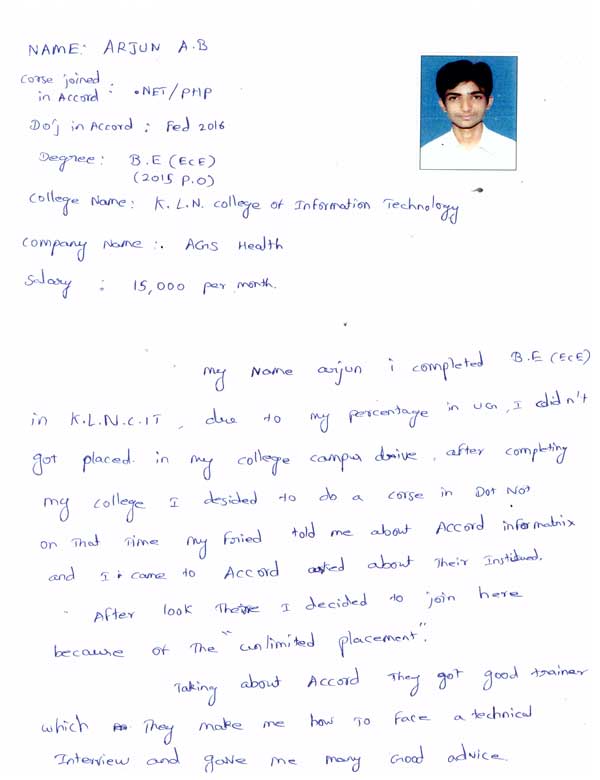 NAME: ARJUN A.B
Corse joined
in Accord : .NET/PHP
Do'j in Accord : Fed 2016
Degree : B.E (ECE)
(2015 P.O)
College Name : K.L.N. college of Information Technology
Company Name :. AGS Health
Salary : 15,000 per month.
my Name arjun i completed B.E (ECE)
in K.L.N.C.IT, due to my percentage in UG, I didn't
got placed. in my college campus drive, after completing
my college I desided to do a corse in Dot Not
on That Time my Fried told me about Accord informatrix
and I came to Accord asked about Their Instidued.
After look There I decided to join here
because of The "unlimited placement".
Taking about Accord They got good trainer
which They make me how To Face a technical
Interview and gave me many Good advice.